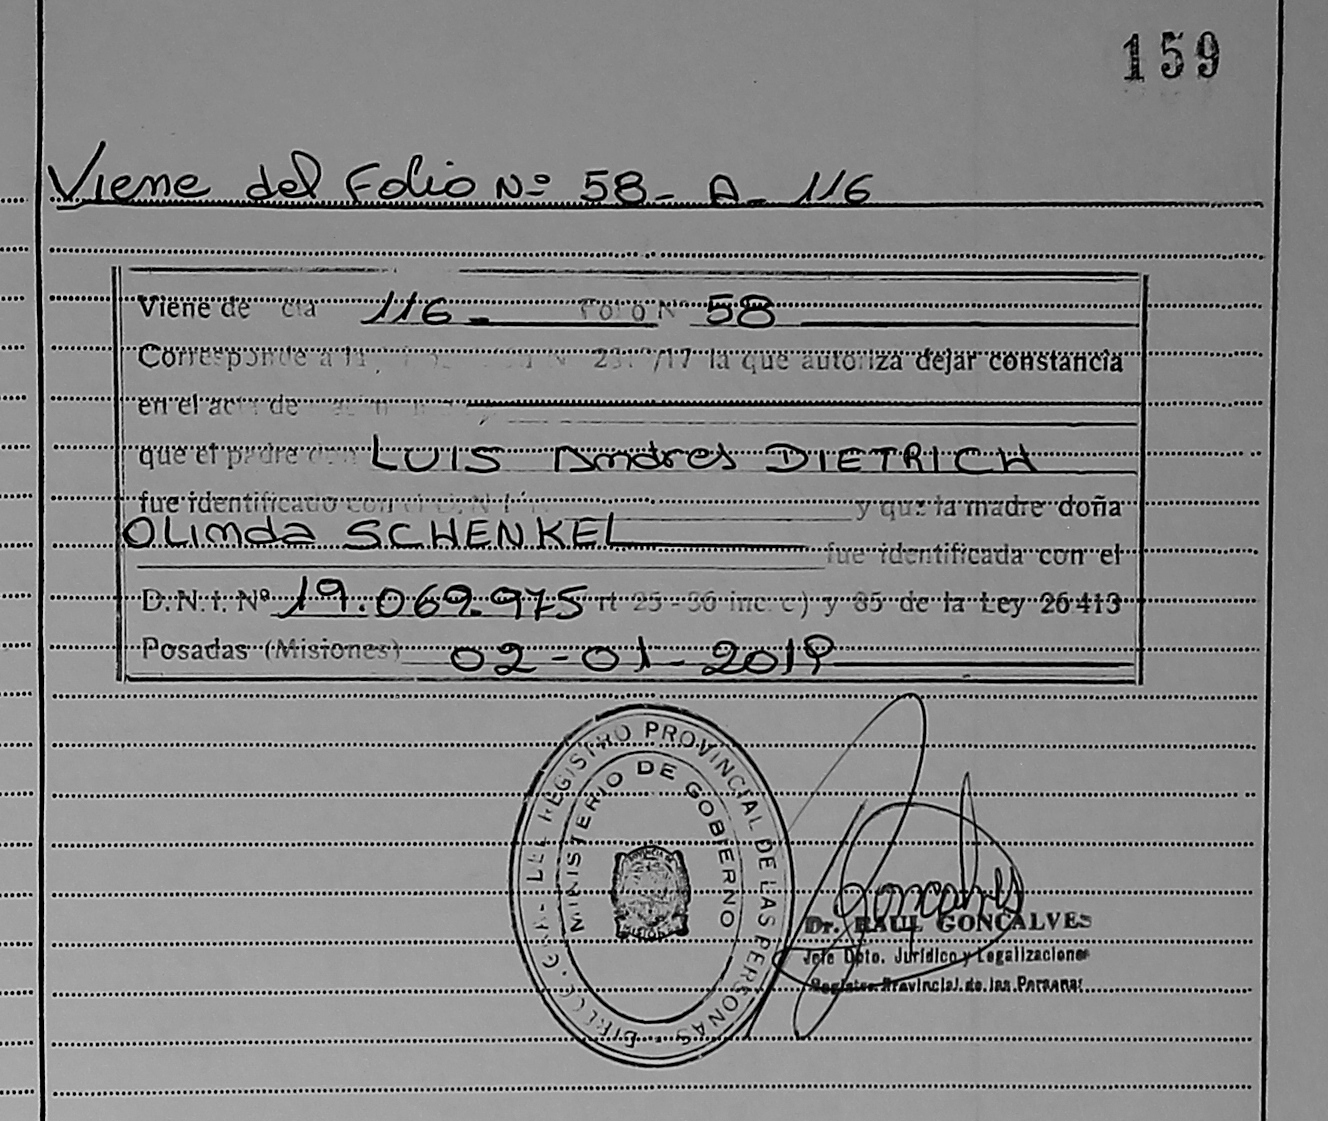 159
Viene del Folio Nº 58 - A - 116
Viene de cta 116 - Folio Nº 58
Corresponde a la /17 la que autoriza dejar constancia
en el acta de
que el padre don LUIS Andres DIETRICH
fue identificado con el D.N.I. Nº y que la madre doña
OLIMDA SCHENKEL fue identificada con el
D.N.I. Nº 19.069.975 rt 25 - 36 inc. c) y 85 de la Ley 26413
Posadas (Misiones) 02 - 01 - 2019
REGISTRO PROVINCIAL DE LAS PERSONAS
MINISTERIO DE GOBIERNO
MISIONES
Goncalves
Dr. RAUL GONCALVES
Jefe Dpto. Jurídico y Legalizaciones
Registro Provincial de las Personas